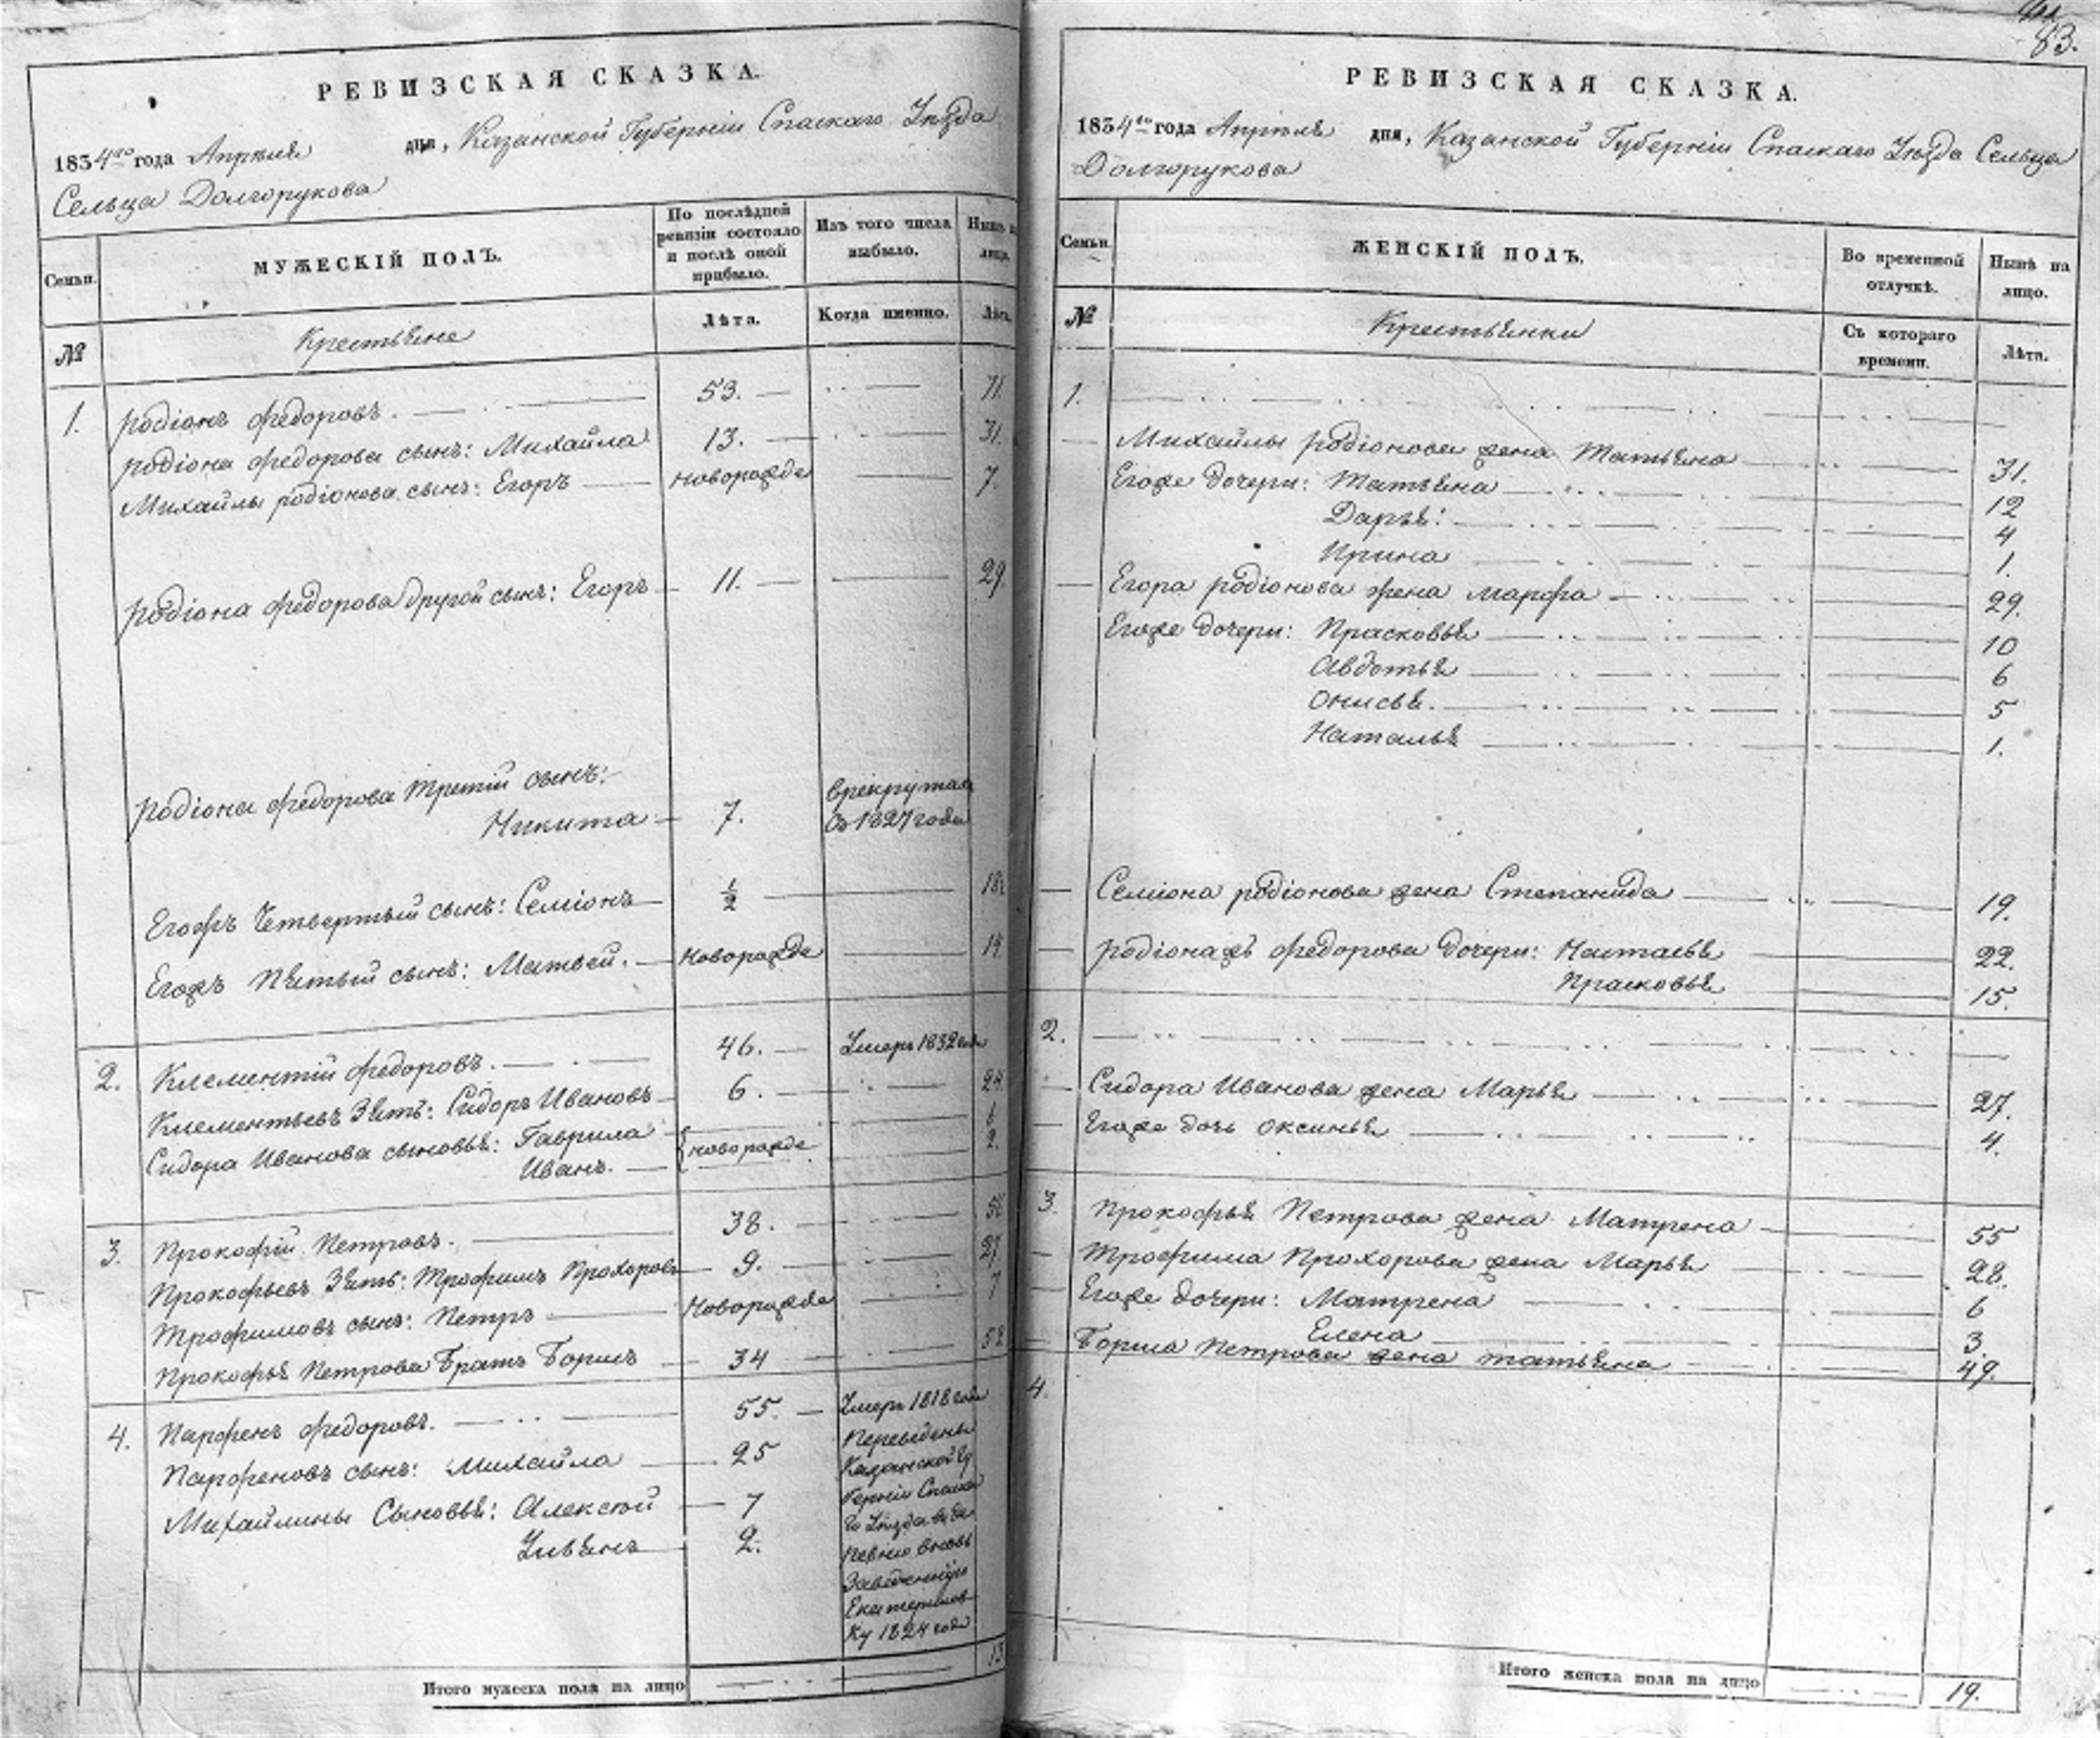 РЕВИЗСКАЯ СКАЗКА.
1834го года Апреля дня, Казанской Губерніи Спаскаго Уезда
Сельца Долгорукова
Семьи.
МУЖЕСКІЙ ПОЛЪ.
По послѣдней ревизіи состояло и послѣ оной прибыло.
Изъ того числа выбыло.
Нынѣ на лицо.
№
Крестьяне
Лѣта.
Когда именно.
Лѣта.
1. Родіонъ Федоровъ. 53. 71.
Родіона Федорова сынъ: Михайла 13. 31.
Михайлы Родіонова сынъ: Егоръ Новорожде 7.
Родіона Федорова другой сынъ: Егоръ 11. 29
Родіона Федорова Третій сынъ:
Никита 7. Врекрутах
съ 1827 года
Егожъ Четвертый сынъ: Семіонъ 1/2 18½
Егожъ Пятый сынъ: Матвей. Новорожде 14
2. Клементій Федоровъ. 46. Умеръ 1832 года
Клементьевъ Зять: Сидоръ Ивановъ 6. 24.
Сидора Иванова сыновья: Гаврила Новорожде 6
Иванъ. 2.
3. Прокофій Петровъ. 38. 56
Прокофьевъ Зять: Трофимъ Прохоровъ 9. 27
Трофимовъ сынъ: Петръ Новорожде 7
Прокофья Петрова Братъ Борисъ 34 52
4. Парфенъ Федоровъ. 55. Умеръ 1818 года
Парфеновъ сынъ: Михайла 25 Переведены
Казанской Гу
Михайлины Сыновья: Алексей 7 берніи Спаска
го Уезда в де
Ульянъ 2. ревню вновь
Заведенную
Екатеринов
ку 1824 года
Итого мужеска пола на лицо 13
83.
РЕВИЗСКАЯ СКАЗКА.
1834го года Апреля дня, Казанской Губерніи Спаскаго Уезда Сельца
Долгорукова
Семьи.
ЖЕНСКІЙ ПОЛЪ.
Во временной отлучкѣ.
Нынѣ на лицо.
№
Крестьянки
Съ котораго времени.
Лѣта.
1.
Михайлы Родіонова жена Татьяна 31.
Егоже дочери: Татьяна 12
Дарья: 4
Ирина 1.
Егора Родіонова жена Марфа 29.
Егоже дочери: Прасковья 10
Авдотья 6
Онисья. 5
Наталья 1.
Семіона Родіонова жена Степанида 19.
Родіонажъ Федорова дочери: Настасья 22.
Прасковья 15.
2.
Сидора Иванова жена Марья 27.
Егоже дочь Оксинья 4.
3. Прокофья Петрова жена Матрена 55
Трофима Прохорова жена Марья 28.
Егоже дочери: Матрена 6
Елена 3.
Бориса Петрова жена Татьяна 49.
4.
Итого женска пола на лицо 19.